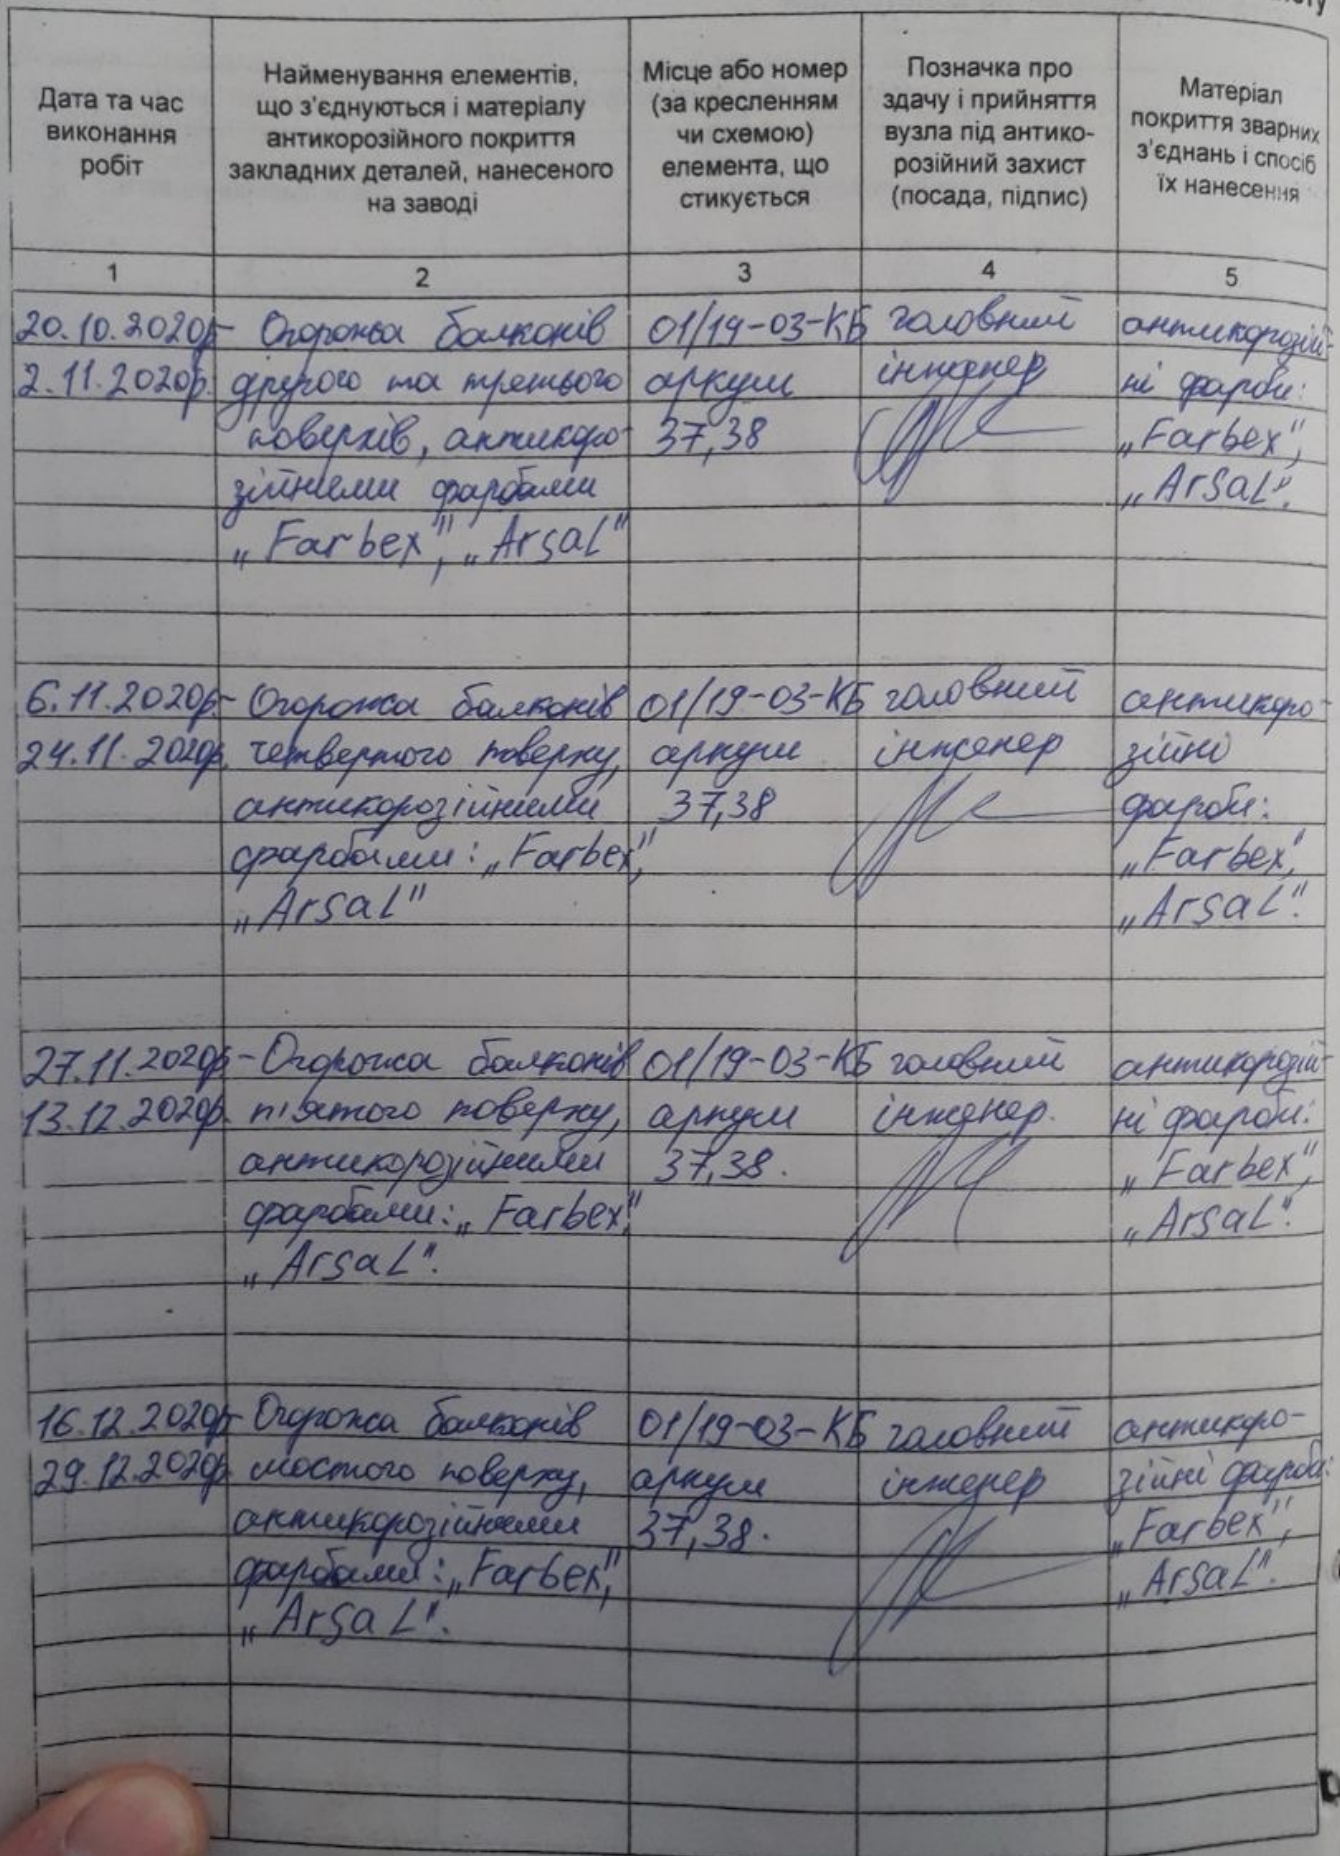 Дата та час
виконання
робіт
Найменування елементів,
що з'єднуються і матеріалу
антикорозійного покриття
закладних деталей, нанесеного
на заводі
Місце або номер
(за кресленням
чи схемою)
елемента, що
стикується
Позначка про
здачу і прийняття
вузла під антико-
розійний захист
(посада, підпис)
Матеріал
покриття зварних
з'єднань і спосіб
їх нанесення
1
2
3
4
5
20.10.2020р-
2.11.2020р.
Огорожа балконів
другого та третього
поверхів, антикоро-
зійними фарбами
„Farbex", „Arsal"
01/19-03-КБ
аркуш
37,38
головний
інженер
антикорозій-
ні фарби:
„Farbex",
„Arsal".
6.11.2020р-
24.11.2020р.
Огорожа балконів
четвертого поверху,
антикорозійними
фарбами: „Farbex",
„Arsal"
01/19-03-КБ
аркуш
37,38
головний
інженер
антикоро-
зійні
фарби:
„Farbex",
„Arsal".
27.11.2020р-
13.12.2020р.
Огорожа балконів
п'ятого поверху,
антикорозійними
фарбами: „Farbex",
„Arsal".
01/19-03-КБ
аркуш
37,38.
головний
інженер.
антикорозій-
ні фарби:
„Farbex",
„Arsal".
16.12.2020р-
29.12.2020р
Огорожа балконів
шостого поверху,
антикорозійними
фарбами: „Farbex",
„Arsal".
01/19-03-КБ
аркуш
37,38.
головний
інженер
антикоро-
зійні фарби:
„Farbex",
„Arsal".